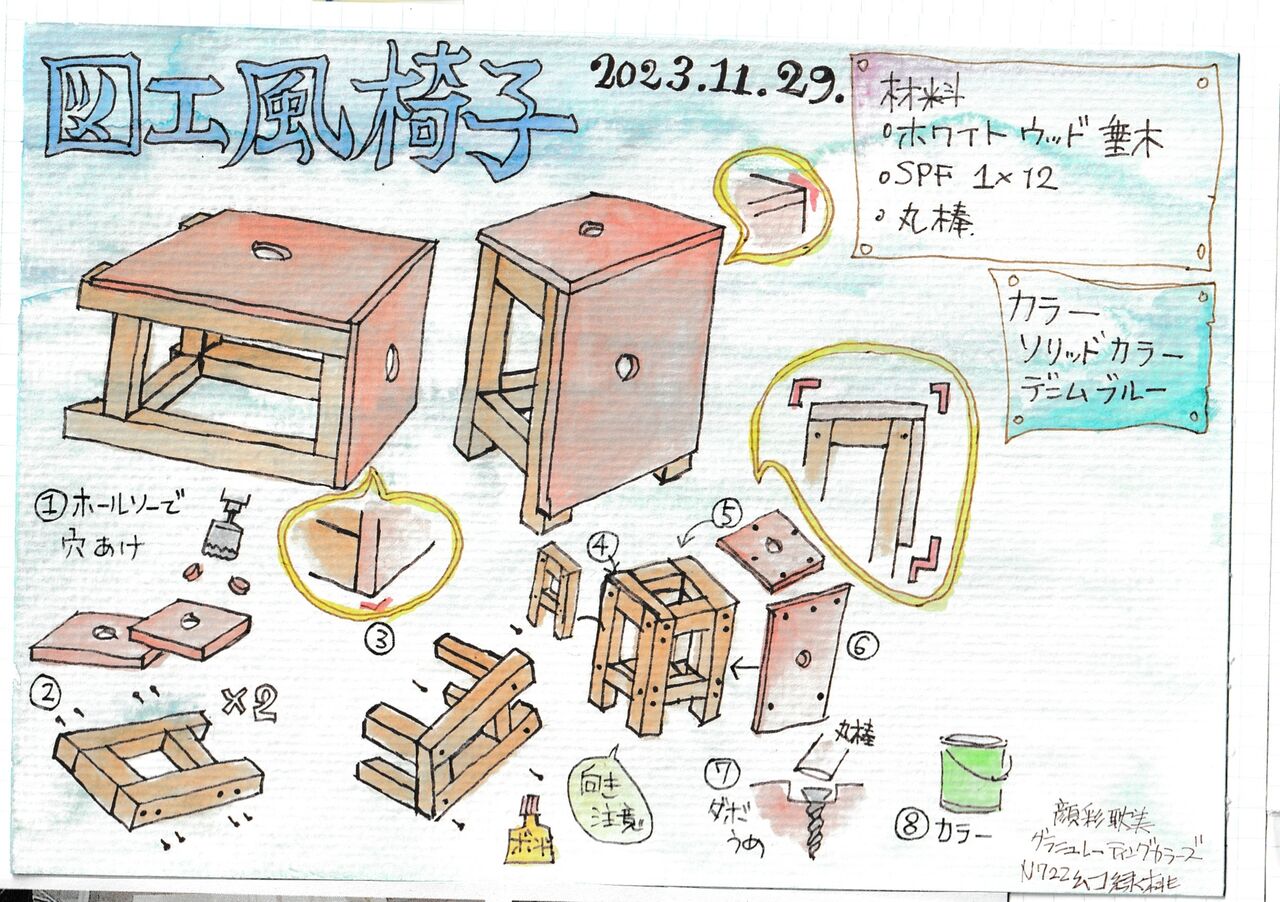 図工風椅子
2023.11.29.
材料
○ホワイトウッド 垂木
○SPF 1×12
○丸棒
カラー
ソリッドカラー
デニムブルー
①ホールソーで
穴あけ
②
×2
③
④
⑤
⑥
向き
注意
ボンド
⑦
丸棒
ダボ
うめ
⑧カラー
顔彩耽美
グラニュレーティングカラーズ